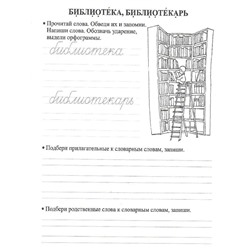 БИБЛИОТЕ́КА, БИБЛИОТЕ́КАРЬ
• Прочитай слова. Обведи их и запомни.
Напиши слова. Обозначь ударение,
выдели орфограммы.
библиотека
библиотекарь
• Подбери прилагательные к словарным словам, запиши.
• Подбери родственные слова к словарным словам, запиши.